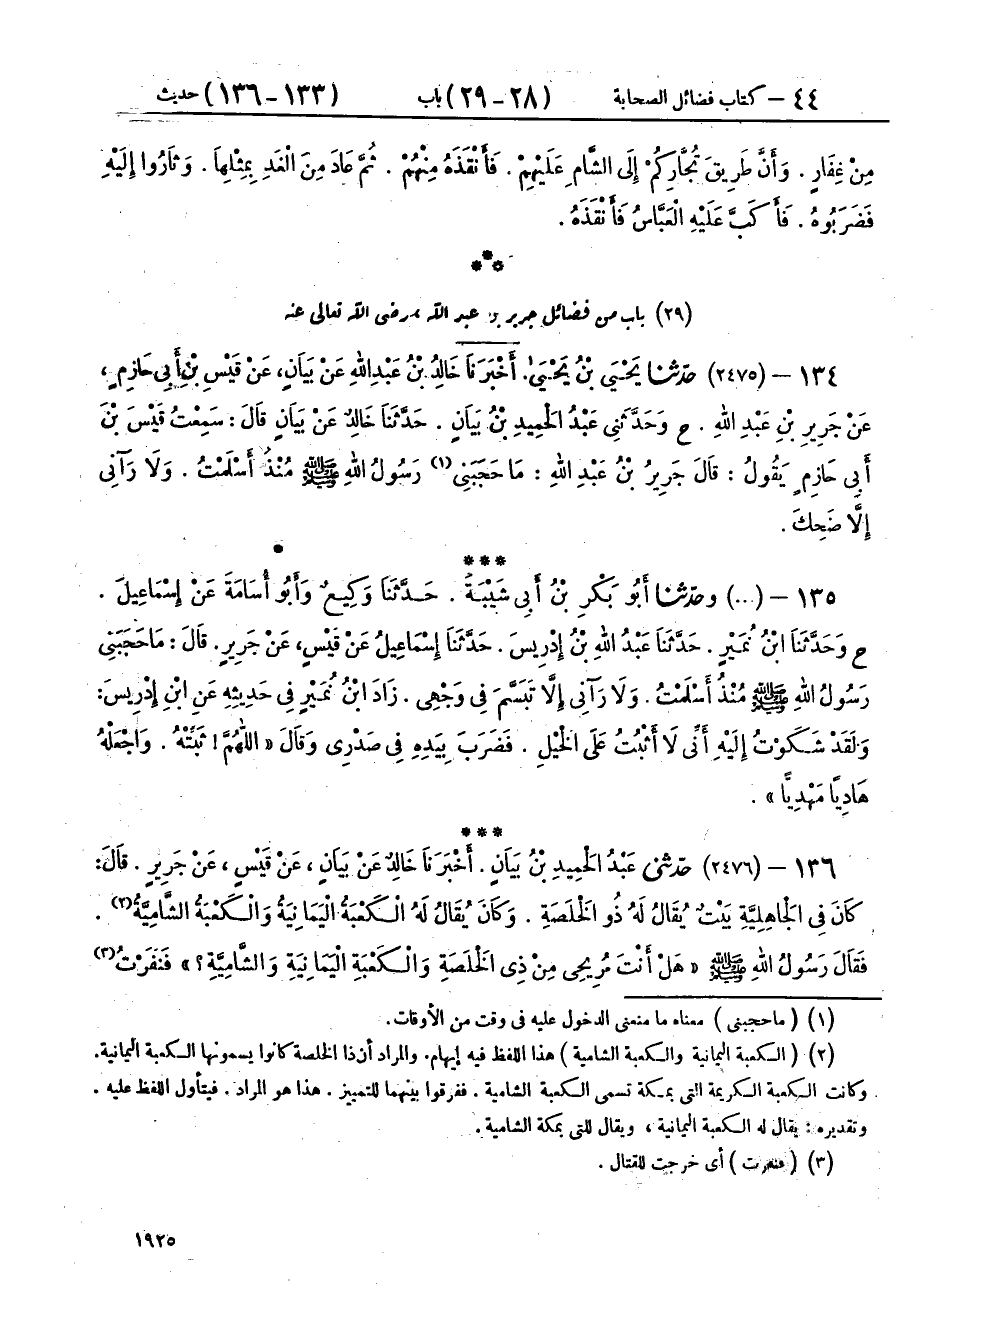 ٤٤ – كتاب فضائل الصحابة (٢٨-٢٩) باب (١٣٣-١٣٦) حديث
مِنْ غِفَارٍ . وَأَنَّ طَرِيقَ تُجَّارِكُمْ إِلَى الشَّامِ عَلَيْهِمْ . فَأَنْقَذَهُ مِنْهُمْ . ثُمَّ عَادَ مِنَ الْغَدِ بِمِثْلِهَا . وَثَارُوا إِلَيْهِ
فَضَرَبُوهُ . فَأَكَبَّ عَلَيْهِ الْعَبَّاسُ فَأَنْقَذَهُ .
***
(٢٩) باب من فضائل جرير بن عبد الله ، رضى الله تعالى عنه
١٣٤ – (٢٤٧٥) حدّثنا يَحْيَى بْنُ يَحْيَىٰ. أَخْبَرَنَا خَالِدُ بْنُ عَبْدِ اللهِ عَنْ بَيَانٍ، عَنْ قَيْسِ بْنِ أَبِي حَازِمٍ ،
عَنْ جَرِيرِ بْنِ عَبْدِ اللهِ . ح وَحَدَّثَنِى عَبْدُ الْحَمِيدِ بْنُ بَيَانٍ . حَدَّثَنَا خَالِدٌ عَنْ بَيَانٍ قَالَ : سَمِعْتُ قَيْسَ بْنَ
أَبِي حَازِمٍ يَقُولُ : قَالَ جَرِيرُ بْنُ عَبْدِ اللهِ : مَا حَجَبَنِى (١) رَسُولُ اللهِ ﷺ مُنْذُ أَسْلَمْتُ . وَلَا رَآنِى
إِلَّا ضَحِكَ .
***
١٣٥ – (...) وحدّثنا أَبُو بَكْرِ بْنُ أَبِي شَيْبَةَ . حَدَّثَنَا وَكِيعٌ وَأَبُو أُسَامَةَ عَنْ إِسْمَاعِيلَ .
ح وَحَدَّثَنَا ابْنُ نُمَيْرٍ . حَدَّثَنَا عَبْدُ اللهِ بْنُ إِدْرِيسَ . حَدَّثَنَا إِسْمَاعِيلُ عَنْ قَيْسٍ، عَنْ جَرِيرٍ. قَالَ : مَا حَجَبَنِى
رَسُولُ اللهِ ﷺ مُنْذُ أَسْلَمْتُ . وَلَا رَآنِى إِلَّا تَبَسَّمَ فِى وَجْهِى . زَادَ ابْنُ نُمَيْرٍ فِى حَدِيثِهِ عَنِ ابْنِ إِدْرِيسَ:
وَلَقَدْ شَكَوْتُ إِلَيْهِ أَنِّى لَا أَثْبُتُ عَلَى الْخَيْلِ . فَضَرَبَ بِيَدِهِ فِى صَدْرِى وَقَالَ « اللَّهُمَّ ! ثَبِّتْهُ . وَاجْعَلْهُ
هَادِيًا مَهْدِيًّا » .
***
١٣٦ – (٢٤٧٦) حدّثنى عَبْدُ الْحَمِيدِ بْنُ بَيَانٍ . أَخْبَرَنَا خَالِدٌ عَنْ بَيَانٍ ، عَنْ قَيْسٍ ، عَنْ جَرِيرٍ . قَالَ :
كَانَ فِى الْجَاهِلِيَّةِ بَيْتٌ يُقَالُ لَهُ ذُو الْخَلَصَةِ . وَكَانَ يُقَالُ لَهُ الْكَعْبَةُ الْيَمَانِيَةُ وَالْكَعْبَةُ الشَّامِيَّةُ (٢) .
فَقَالَ رَسُولُ اللهِ ﷺ « هَلْ أَنْتَ مُرِيحِى مِنْ ذِى الْخَلَصَةِ وَالْكَعْبَةِ الْيَمَانِيَةِ وَالشَّامِيَّةِ ؟ » فَنَفَرْتُ (٣)
(١) ( ماحجبنى ) معناه ما منعنى الدخول عليه فى وقت من الأوقات .
(٢) ( الكعبة اليمانية والكعبة الشامية ) هذا اللفظ فيه إيهام. والمراد أن ذا الخلصة كانوا يسمونها الكعبة اليمانية.
وكانت الكعبة الكريمة التى بمكة تسمى الكعبة الشامية . ففرقوا بينهما للتمييز . هذا هو المراد . فيتأول اللفظ عليه .
وتقديره : يقال له الكعبة اليمانية ، ويقال للتى بمكة الشامية .
(٣) ( فنفرت ) أى خرجت للقتال .
١٩٢٥